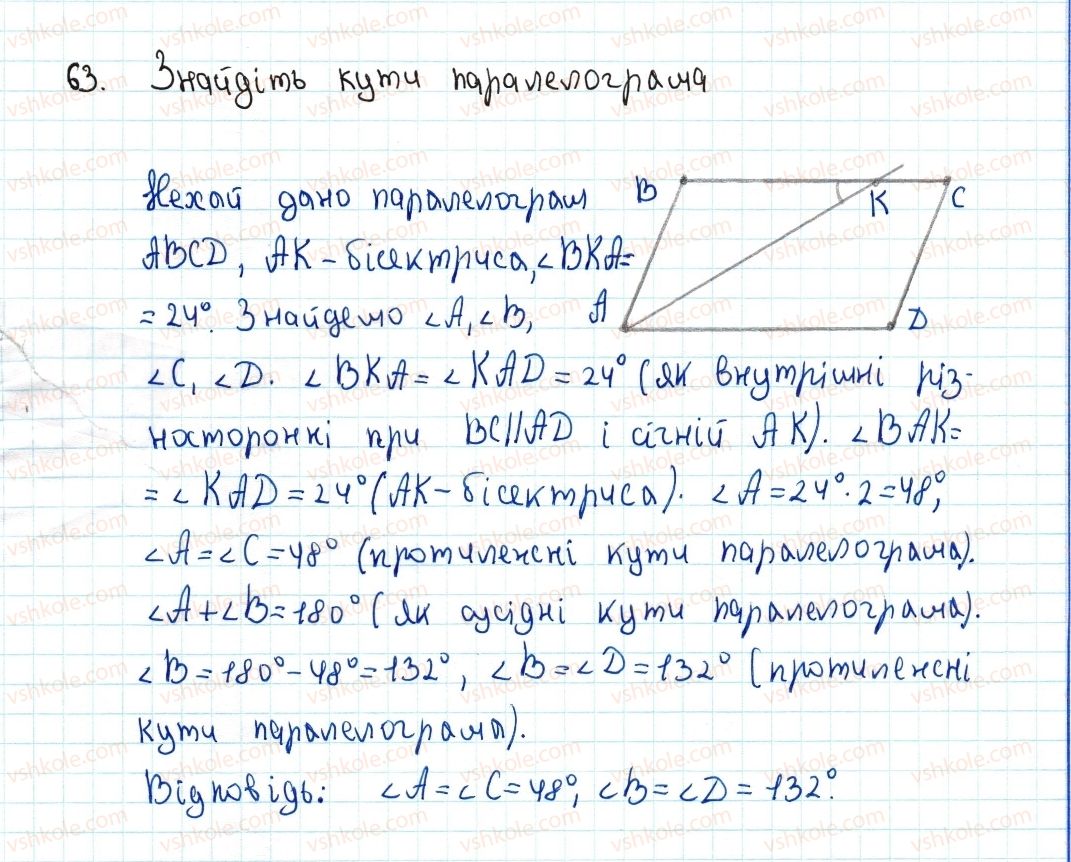 63. Знайдіть кути паралелограма
Нехай дано паралелограм
ABCD, AK - бісектриса, ∠BKA=
= 24°. Знайдемо ∠A, ∠B,
∠C, ∠D. ∠BKA = ∠KAD = 24° (як внутрішні різ-
носторонні при BC||AD і січній AK). ∠BAK=
= ∠KAD = 24° (AK - бісектриса). ∠A = 24° · 2 = 48°,
∠A = ∠C = 48° (протилежні кути паралелограма).
∠A + ∠B = 180° (як сусідні кути паралелограма).
∠B = 180° - 48° = 132°, ∠B = ∠D = 132° (протилежні
кути паралелограма).
Відповідь: ∠A = ∠C = 48°, ∠B = ∠D = 132°.
B
K
C
A
D
vshkole.com